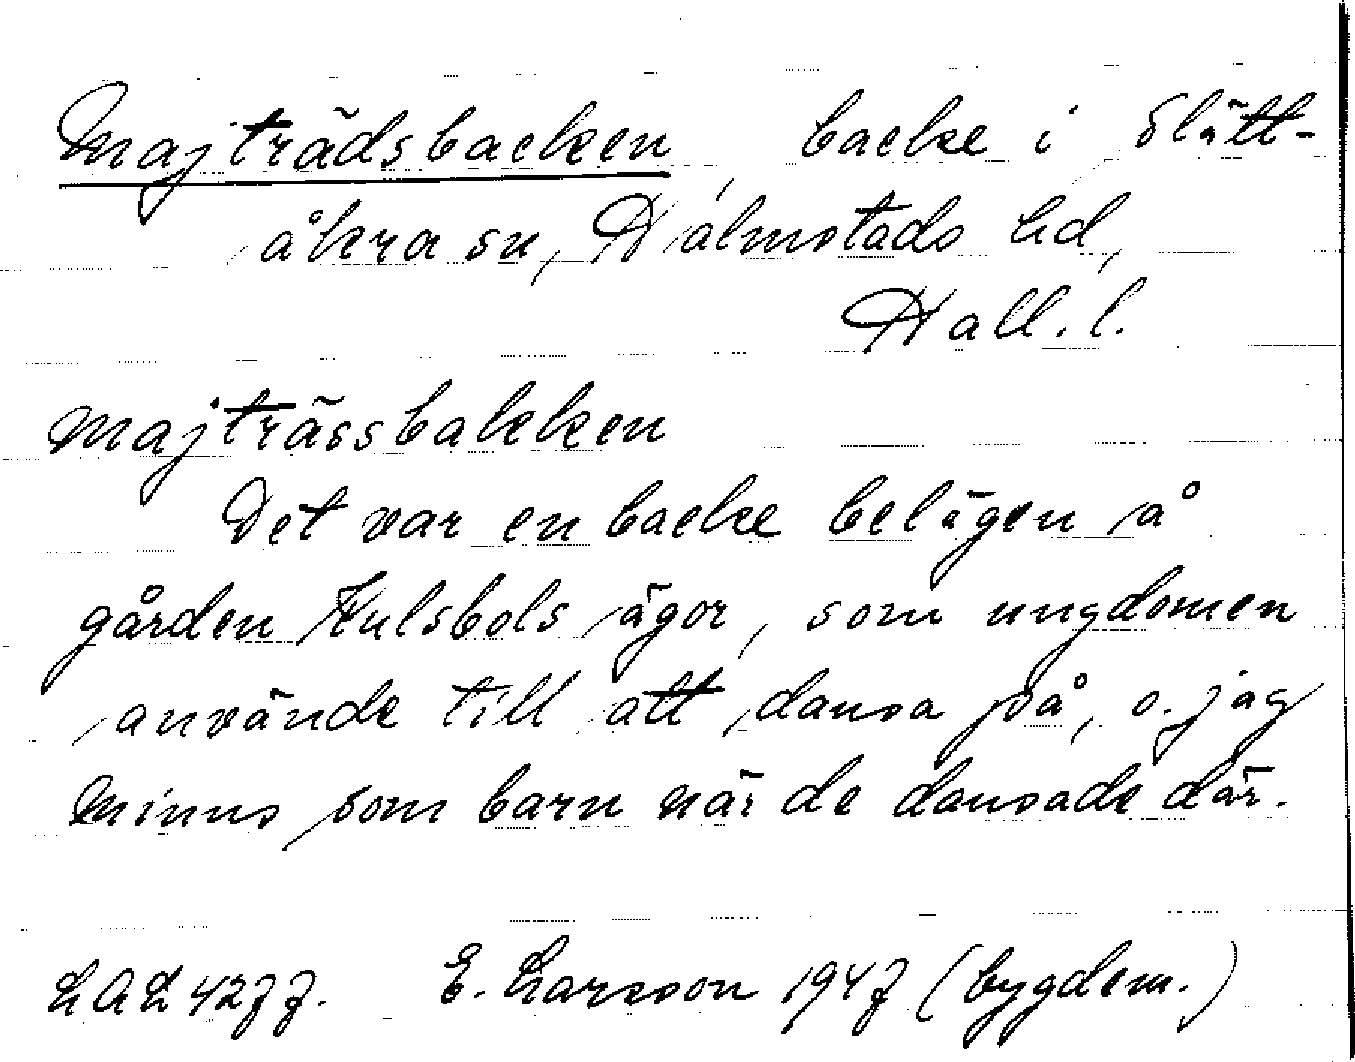 Majträdsbacken, backe i Slätt-
åkra sn, Halmstads hd,
Hall. l.
majträssbakken
Det var en backe belägen å
gården Kulsbols ägor, som ungdomen
använde till att dansa på, o. jag
minns som barn när de dansade där.
LAL 4277. E. Larsson 1947 (bygdem.)